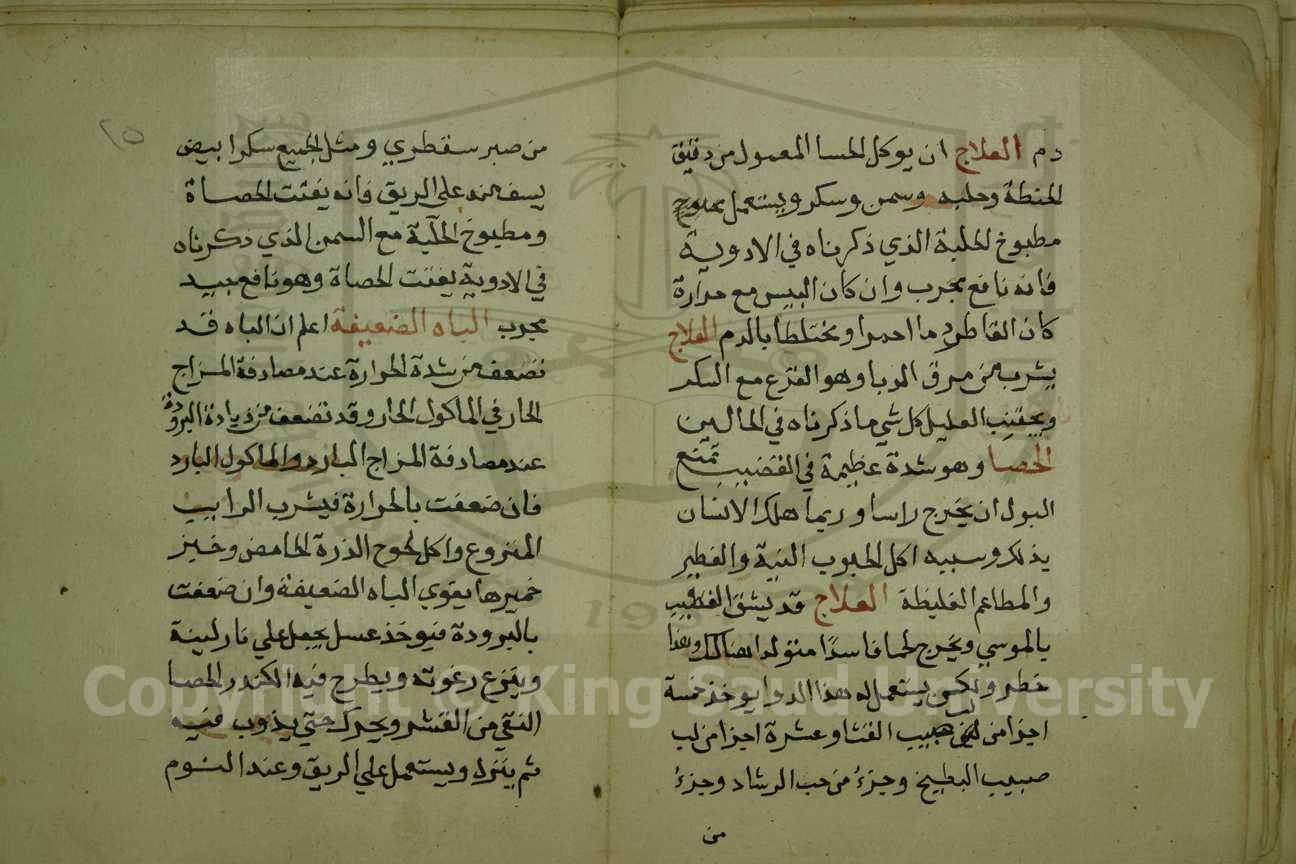 دم العلاج ان يوكل الحسا المعمول من دقيق
الحنطة وحلبه وسمن وسكر ويستعمل
مطبوخ الحلبة الذي ذكرناه في الادوية
فانه نافع مجرب وان كان اليبس مع حرارة
كان القاطر دما احمرا ومختلطا بالدم العلاج
يشرب من مرق الدبا وهو القرع مع السكر
ويجتنب العليل كل شي ما ذكرناه في الحالين
الحصا وهو شدة عظيمة في القضيب تمنع
البول ان يخرج راسا وربما هلك الانسان
بذلك وسببه اكل الحبوب النية والفطير
والمطاعم الغليظة العلاج قد يشق القضيب
بالموسي ويخرج لحما فاسدا متولدا هنالك وهذا
خطر ولكن يستعمل له هذا الدوا يوخذ خمسة
اجزا من لب حبيب القثا وعشرة اجزا من لب
حبيب البطيخ وجزء من حب الرشاد وجزء
من
٢٥
من صبر سقطري ومثل الجميع سكرا بيض
يسف منه على الريق فانه يفتت الحصاة
ومطبوخ الحلبة مع السمن الذي ذكرناه
في الادوية يفتت الحصاة وهو نافع جيد
مجرب الباه الضعيفة اعلم ان الباه قد
تضعف من شدة الحرارة عند مصادفة المزاج
الحار في الماكول الحار وقد تضعف من زيادة البرودة
عند مصادفة المزاج البارد والماكول البارد
فان ضعفت بالحرارة فيشرب الرايب
المنزوع واكل لحوح الذرة الحامض وخبز
خميرها يقوي الباه الضعيفة وان ضعفت
بالبرودة فيوخذ عسل يجعل علي نار لينة
وينزع رغوته ويطرح فيه الكندر الحصا
النقي من القشر ويحرك حتي يذوب فيه
ثم ينزل ويستعمل علي الريق وعند النوم
Copyright © King Saud University